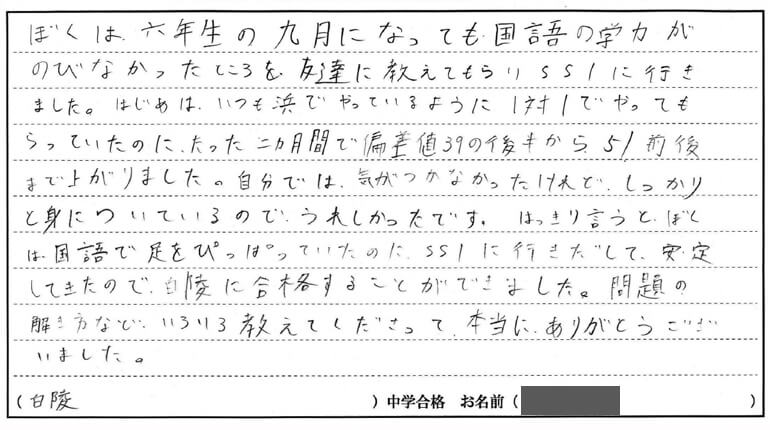 ぼくは、六年生の九月になっても国語の学力が
のびなかったところを、友達に教えてもらいSS1に行き
ました。はじめは、いつも浜でやっているように1対1でやっても
らっていたのに、たった二カ月間で偏差値39の後半から、51前後
まで上がりました。自分では、気がつかなかったけれど、しっかり
と身についているので、うれしかったです。はっきり言うと、ぼく
は国語で足をぴっぱっていたのに、SS1に行きだして、安定
してきたので、白陵に合格することができました。問題の
解き方など、いろいろ教えてくださって、本当に、ありがとうござ
いました。
(白陵)中学合格 お名前()